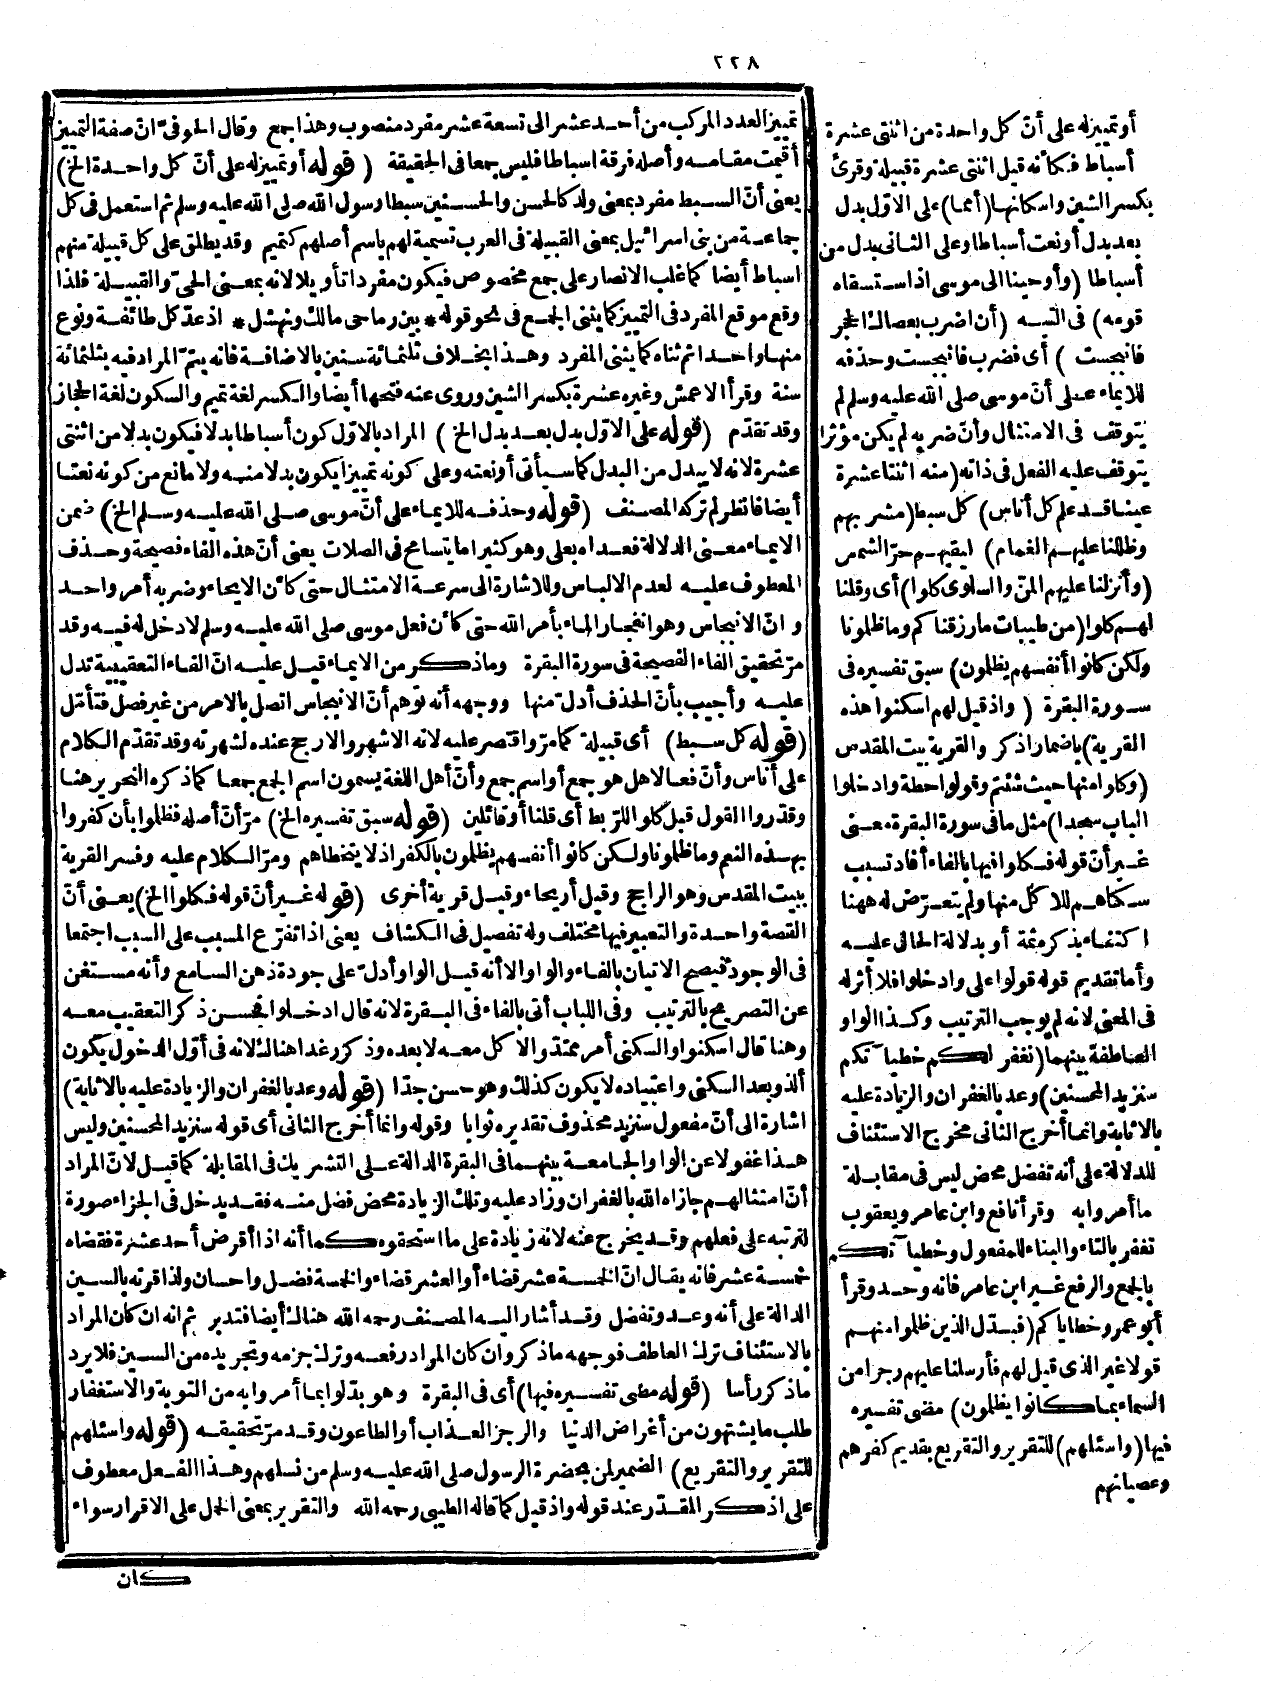 ٢٢٨
أو تمييز له على أنّ كل واحدة من اثنتى عشرة
أسباط فكأنه قيل اثنتى عشرة قبيلة وقرئ
بكسر الشين واسكانها (أمما) على الاوّل بدل
بعد بدل أو نعت أسباطا وعلى الثانى بدل من
أسباطا (وأوحينا الى موسى اذ استسقاه
قومه) فى التيه (أن اضرب بعصاك الحجر
فانبجست) أى فضرب فانبجست وحذفه
للايماء على أنّ موسى صلى الله عليه وسلم لم
يتوقف فى الامتثال وأنّ ضربه لم يكن مؤثرا
يتوقف عليه الفعل فى ذاته (منه اثنتا عشرة
عينا قد علم كل أناس) كل سبط (مشربهم
وظللنا عليهم الغمام) ليقيهم حرّ الشمس
(وأنزلنا عليهم المنّ والسلوى كلوا) أى وقلنا
لهم كلوا (من طيبات ما رزقناكم وما ظلمونا
ولكن كانوا أنفسهم يظلمون) سبق تفسيره فى
سورة البقرة (واذ قيل لهم اسكنوا هذه
القرية) باضمار اذكر والقرية بيت المقدس
(وكلوا منها حيث شئتم وقولوا حطة وادخلوا
الباب سجدا) مثل ما فى سورة البقرة معنى
غير أنّ قوله فكلوا فيها بالفاء أفاد تسبب
سكناهم للاكل منها ولم يتعرّض له ههنا
اكتفاء بذكره ثمة أو بدلالة الحال عليه
وأما تقديم قوله قولوا على وادخلوا فلا أثر له
فى المعنى لانه لم يوجب الترتيب وكذا الواو
العاطفة بينهما (نغفر لكم خطيآتكم
سنزيد المحسنين) وعد بالغفران والزيادة عليه
بالاثابة وانما أخرج الثانى مخرج الاستئناف
للدلالة على أنه تفضل محض ليس فى مقابلة
ما أمروا به وقرأ نافع وابن عامر ويعقوب
تغفر بالتاء والبناء للمفعول وخطيآتكم
بالجمع والرفع غير ابن عامر فانه وحد وقرأ
أبو عمرو خطاياكم (فبدّل الذين ظلموا منهم
قولا غير الذى قيل لهم فأرسلنا عليهم رجزا من
السماء بما كانوا يظلمون) مضى تفسيره
فيها (واسئلهم) للتقرير والتقريع بقديم كفرهم
وعصيانهم
تمييز العدد المركب من أحد عشر الى تسعة عشر مفرد منصوب وهذا جمع وقال الحوفىّ انّ صفة التمييز
أقيمت مقامه وأصله فرقة اسباطا فليس جمعا فى الحقيقة (قوله أو تمييز له على أنّ كل واحدة الخ)
يعنى أنّ السبط مفرد بمعنى ولد كالحسن والحسين سبطا رسول الله صلى الله عليه وسلم ثم استعمل فى كل
جماعة من بنى اسرائيل بمعنى القبيلة فى العرب تسمية لهم باسم أصلهم كتميم وقد يطلق على كل قبيلة منهم
اسباط أيضا كما غلب الانصار على جمع مخصوص فيكون مفردا تأويلا لانه بمعنى الحىّ والقبيلة فلذا
وقع موقع المفرد فى التمييز كما يثنى الجمع فى نحو قوله * بين رماحى مالك ونهشل * اذ عدّ كل طائفة ونوع
منها واحدا ثم ثناه كما يثنى المفرد وهذا بخلاف ثلثمائة سنين بالاضافة فانه يتمّ المراد فيه بثلثمائة
سنة وقرأ الاعمش وغيره عشرة بكسر الشين وروى عنه فتحها أيضا والكسر لغة تميم والسكون لغة الحجاز
وقد تقدّم (قوله على الاوّل بدل بعد بدل الخ) المراد بالاوّل كون أسباطا بدلا فيكون بدلا من اثنتى
عشرة لانه لا يبدل من البدل كما سيأتى أو نعته وعلى كونه تمييزا يكون بدلا منه ولا مانع من كونه نعتا
أيضا فانظر لم تركه المصنف (قوله وحذفه للايماء على أنّ موسى صلى الله عليه وسلم الخ) ضمن
الايماء معنى الدلالة فعداه بعلى وهو كثيرا ما يتسامح فى الصلات يعنى أنّ هذه الفاء فصيحة وحذف
المعطوف عليه لعدم الالباس وللاشارة الى سرعة الامتثال حتى كأن الايحاء وضربه أمر واحد
وانّ الانبجاس وهو انفجار الماء بأمر الله حتى كأن فعل موسى صلى الله عليه وسلم لا دخل له فيه وقد
مرّ تحقيق الفاء الفصيحة فى سورة البقرة وما ذكر من الايماء قيل عليه انّ الفاء التعقيبية تدل
عليه وأجيب بأنّ الحذف أدلّ منها ووجهه أنه توهم أنّ الانبجاس اتصل بالامر من غير فصل فتأمّل
(قوله كل سبط) أى قبيلة كما مرّ واقتصر عليه لانه الاشهر والارجح عنده لشهرته وقد تقدّم الكلام
على أناس وأنّ فعالا هل هو جمع أو اسم جمع وأنّ أهل اللغة يسمون اسم الجمع جمعا كما ذكره النحرير هنا
وقدّروا القول قبل كلوا للربط أى قلنا أو قائلين (قوله سبق تفسيره الخ) مرّ أنّ أصله فظلموا بأن كفروا
بهذه النعم وما ظلمونا ولكن كانوا أنفسهم يظلمون بالكفر اذ لا يتخطاهم ومرّ الكلام عليه وفسر القرية
ببيت المقدس وهو الراجح وقيل أريحاء وقيل قرية أخرى (قوله غير أنّ قوله فكلوا الخ) يعنى أنّ
القصة واحدة والتعبير فيها مختلف وله تفصيل فى الكشاف يعنى اذا تفرّع المسبب على السبب اجتمعا
فى الوجود فيصح الاتيان بالفاء والواو الا أنه قيل الواو أدلّ على جودة ذهن السامع وأنه مستغن
عن التصريح بالترتيب وفى اللباب أتى بالفاء فى البقرة لانه قال ادخلوا فحسن ذكر التعقيب معه
وهنا قال اسكنوا والسكنى أمر ممتدّ والاكل معه لا بعده وذكر رغدا هنالك لانه فى أوّل الدخول يكون
ألذ وبعد السكنى واعتياده لا يكون كذلك وهو حسن جدّا (قوله وعد بالغفران والزيادة عليه بالاثابة)
اشارة الى أنّ مفعول سنزيد محذوف تقديره ثوابا وقوله وانما أخرج الثانى أى قوله سنزيد المحسنين وليس
هذا غفولا عن الواو الجامعة بينهما فى البقرة الدالة على التشريك فى المقابلة كما قيل لانّ المراد
أنّ امتثالهم جازاه الله بالغفران وزاد عليه وتلك الزيادة محض فضل منه فقد يدخل فى الجزاء صورة
لترتبه على فعلهم وقد يخرج عنه لانه زيادة على ما استحقوه كما أنه اذا أقرض أحد عشرة فقضاه
خمسة عشر فانه يقال انّ الخمسة عشر قضاء أو العشر قضاء والخمسة فضل واحسان ولذا قرنه بالسين
الدالة على أنه وعد وتفضل وقد أشار اليه المصنف رحمه الله هنالك أيضا فتدبر ثم انه ان كان المراد
بالاستئناف ترك العاطف فوجهه ما ذكر وان كان المراد رفعه وترك جزمه وتجريده من السين فلا يرد
ما ذكر رأسا (قوله مضى تفسيره فيها) أى فى البقرة وهو بدّلوا بما أمروا به من التوبة والاستغفار
طلب ما يشتهون من أغراض الدنيا والرجز العذاب أو الطاعون وقد مرّ تحقيقه (قوله واسئلهم
للتقرير والتقريع) الضمير لمن بحضرة الرسول صلى الله عليه وسلم من نسلهم وهذا الفعل معطوف
على اذكر المقدّر عند قوله واذ قيل كما قاله الطيبى رحمه الله والتقرير بمعنى الحمل على الاقرار سواء
كان